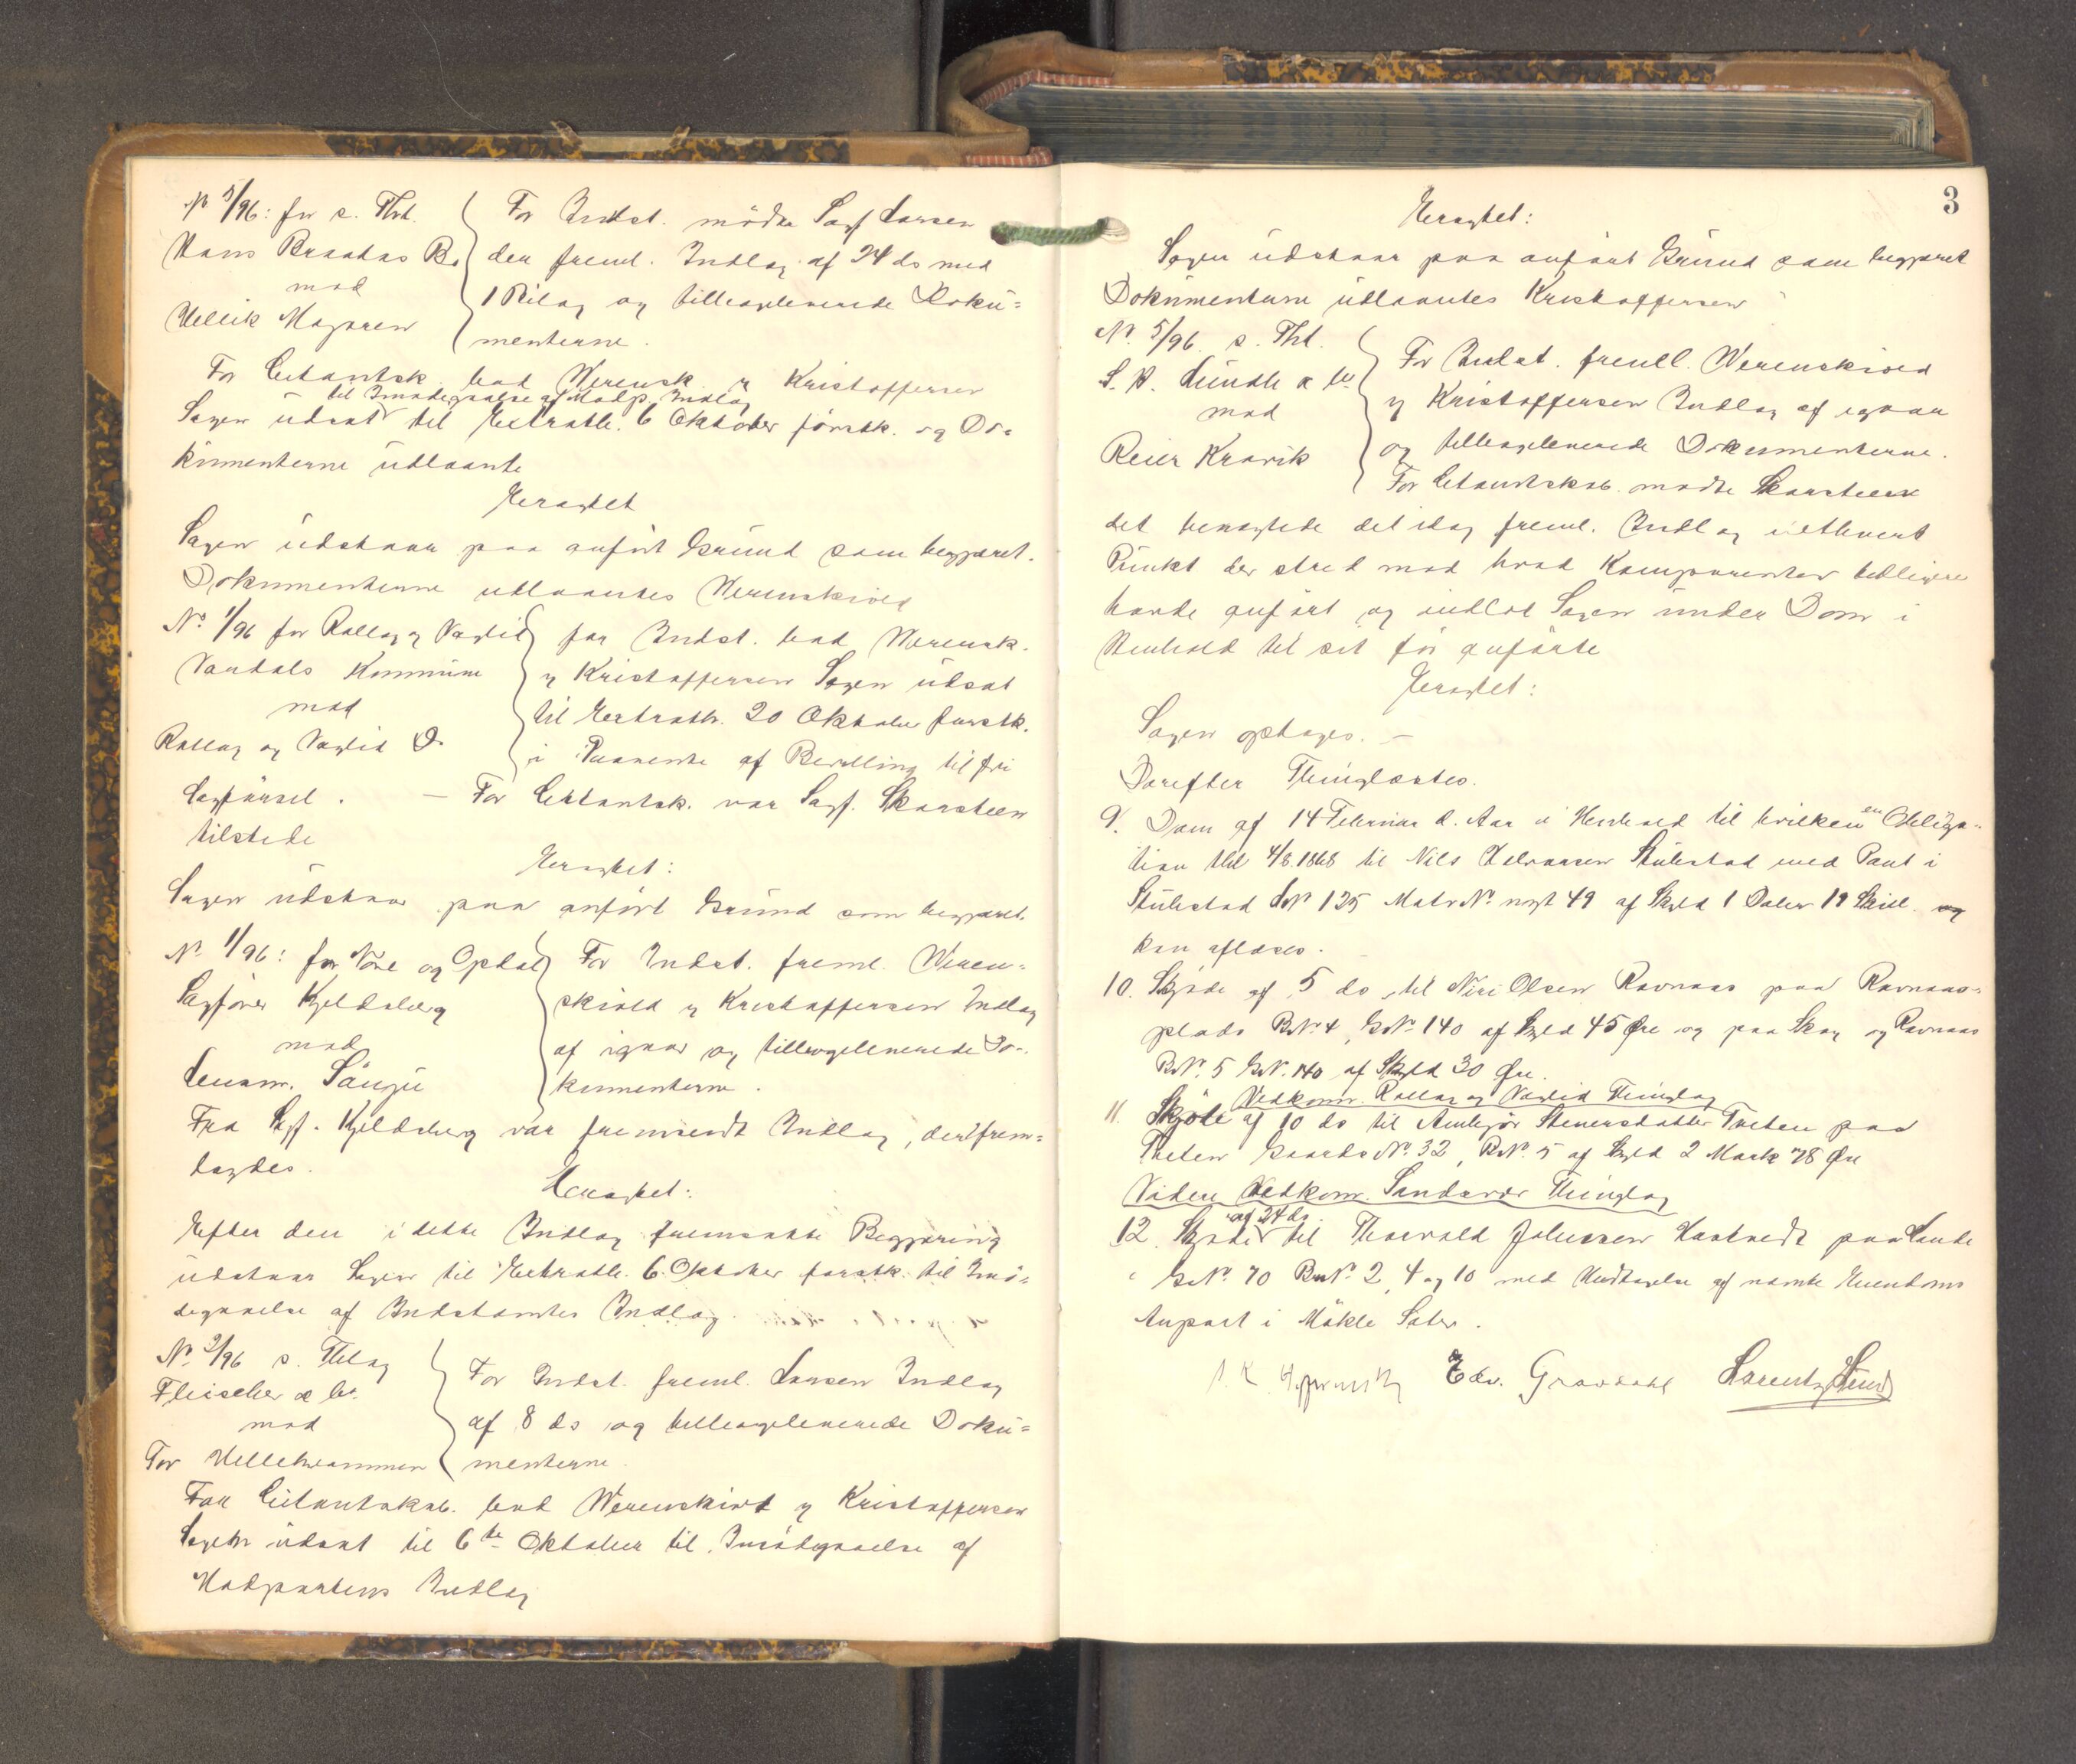 No 5/96: for s. Tht.
Hans Braatas Bo
mod
Hellik Magaren
For Indst. mødte Sagf Larsen
der freml. Indlæg af 24 ds med
1 Bilag og tilleveglenerede Doku=
menterne.
For Citantsk. bad Werensk. og Kristoffersen
til Imødegaaelse af Modp. Indlæg
Sagen udsat til Extrath. 6 Oktober førstk. og Do=
kumenterne udlaante
Eragtet
Sagen udstaar paa anført Grund som begjæret.
Dokumenterne udlaantes Werenskiold
No 1/96 for Rollag og Væglid
Nordals Kommune
mod
Rollag og Væglid
for Indst. bad Werensk.
og Kristoffersen Sagen udsat
til Extrath. 20 Oktober førstk.
i Paavente af Bevilling til fri
Sagførsel. — For Citantsk. var Sagf. Skarsteen
tilstede
Eragtet:
Sagen udstaar paa anført Grund som begjæret.
No 1/96: for Nore og Opdal
Sagfører Kjeldsberg
mod
Lensm. Sönju
For Indst. freml. Weren=
skiold og Kristoffersen Indlæg
af igaar og tilleveglenerede Do=
kumenterne.
Fra Sagf. Kjeldsberg var fremsendt Indlæg, der frem=
lagdes.
Eragtet:
Efter den i dette Indlæg fremsatte Begjæring
udstaar Sagen til Extrath. 6 Oktober førstk. til Imø=
degaaelse af Indstævntes Indlæg.
No 2/96 s. Thlag
Fleischer & Co.
mod
Tor Hellehvammen
For Indst. freml. Larsen Indlæg
af 8 ds og tilleveglenerede Doku=
menterne.
For Citantskab. bad Werenskiold og Kristoffersen
Sagen udsat til 6te Oktober til Imødegaaelse af
Modpartens Indlæg
3
Eragtet:
Sagen udstaar paa anført Grund som begjæret
Dokumenterne udlaantes Kristoffersen
No. 5/96 s. Tht.
S. H. Lundh & Co
mod
Reier Kravik
For Indst. freml. Werenskiold
og Kristoffersen Indlæg af igaar
og tilleveglenerede Dokumenterne.
For Citantskab. mødte Skarsteen
det benægtede det idag freml. Indlæg i ethvert
Punkt der stred mod hvad Komparenten tidligere
havde anført og indlod Sagen under Dom i
Henhold til sit før anførte
Eragtet:
Sagen optages. —
Derefter Thinglæstes.
9. Dom af 14 Februar d. Aar i Henhold til hvilken en Obliga=
tion tld 4/8 1868 til Nils Halvorsen Stubstad med Pant i
Stubstad LNo 125 MatrNo nyt 49 af Skyld 1 Daler 19 Skill.
kan aflæses.
10. Skjøde af 5 ds til Niri Olsen Ravnaas paa Ravnaas=
plads BNo 4, GNo 140 af Skyld 45 Øre og paa Skog og Ravnaas
BNo 5 GNo. 140 af Skyld 30 Øre.
Vedkom. Rollag og Væglid Thinglag
11. Skjøte af 10 ds til Ambjør Stenersdatter Tveten paa
Tveten GaardsNo. 32, BNo. 5 af Skyld 2 Mark 78 Øre
Videre Vedkom. Sandsvær Thinglag
af 24 ds.
12. Skjøde til Thorvald Johnsen Hostvedt paa Lande
GNo. 70 BrNo. 2, 4 og 10 med Undtagelse af nævnte Eiendoms
Anpart i Mökle Sæter.
Edv. Gravdahl Lorentz Lund